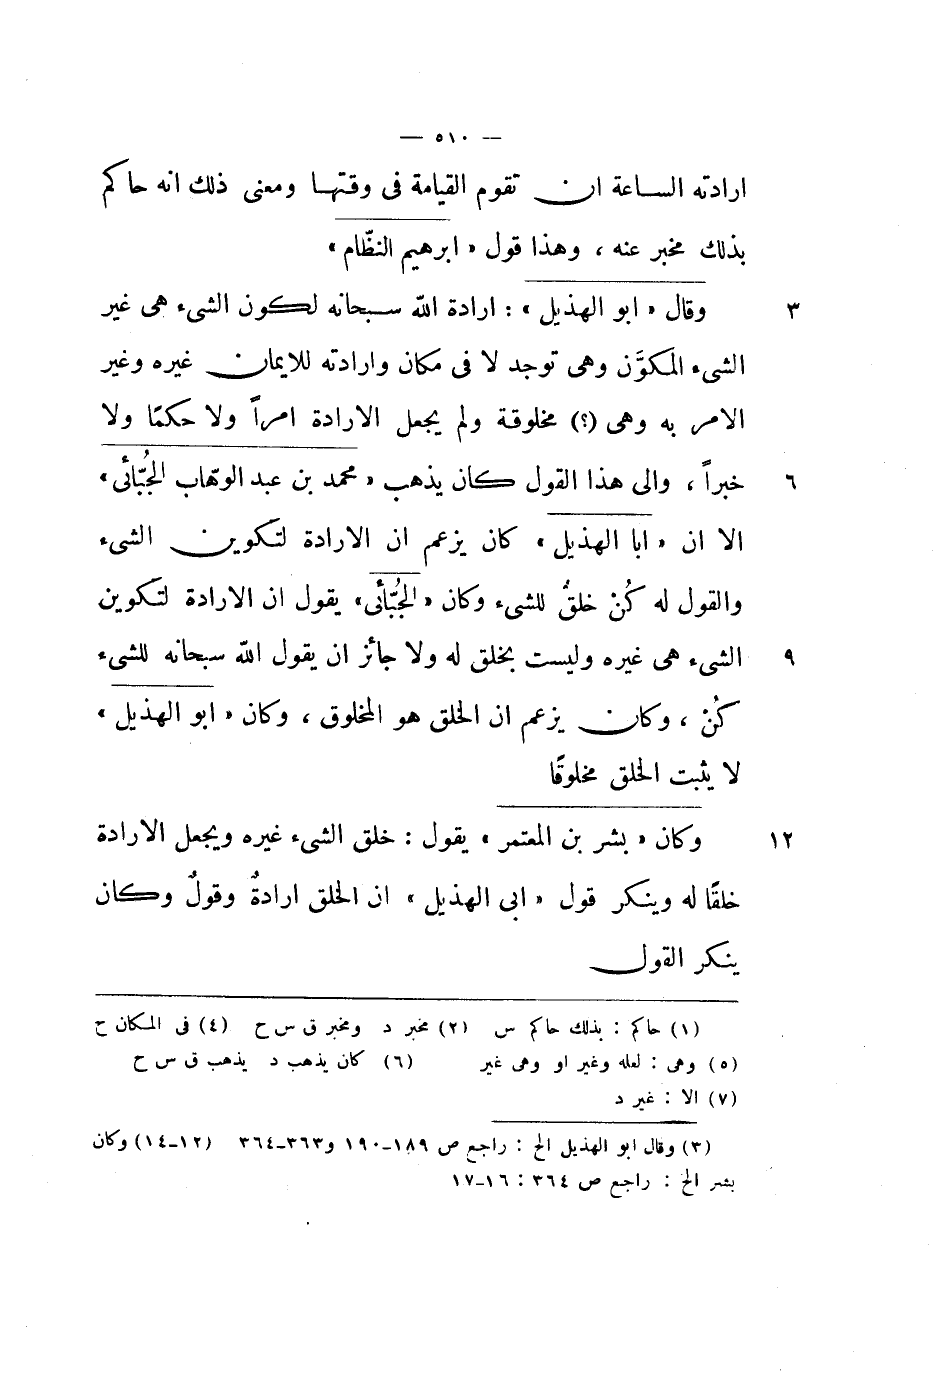 — ٥١٠ —
ارادته الساعة ان تقوم القيامة فى وقتها ومعنى ذلك انه حاكم
بذلك مخبر عنه ، وهذا قول « ابرهيم النظّام »
٣ وقال « ابو الهذيل » : ارادة الله سبحانه لكون الشىء هى غير
الشىء المكوَّن وهى توجد لا فى مكان وارادته للايمان غيره وغير
الامر به وهى (؟) مخلوقة ولم يجعل الارادة امراً ولا حكمًا ولا
٦ خبراً ، والى هذا القول كان يذهب « محمد بن عبد الوهّاب الجُبّائى »
الا ان « ابا الهذيل » كان يزعم ان الارادة لتكوين الشىء
والقول له كُنْ خلقٌ للشىء وكان « الجُبّائى » يقول ان الارادة لتكوين
٩ الشىء هى غيره وليست بخلق له ولا جائز ان يقول الله سبحانه للشىء
كُنْ ، وكان يزعم ان الخلق هو المخلوق ، وكان « ابو الهذيل »
لا يثبت الخلق مخلوقًا
١٢ وكان « بشر بن المعتمر » يقول : خلق الشىء غيره ويجعل الارادة
خلقًا له وينكر قول « ابى الهذيل » ان الخلق ارادةٌ وقولٌ وكان
ينكر القول
(١) حاكم : بذلك حاكم س (٢) مخبر د ومخبر ق س ح (٤) فى المكان ح
(٥) وهى : لعله وغير او وهى غير (٦) كان يذهب د يذهب ق س ح
(٧) الا : غير د
(٣) وقال ابو الهذيل الخ : راجع ص ١٨٩-١٩٠ و٣٦٣-٣٦٤ (١٢-١٤) وكان
بشر الخ : راجع ص ٣٦٤ : ١٦-١٧